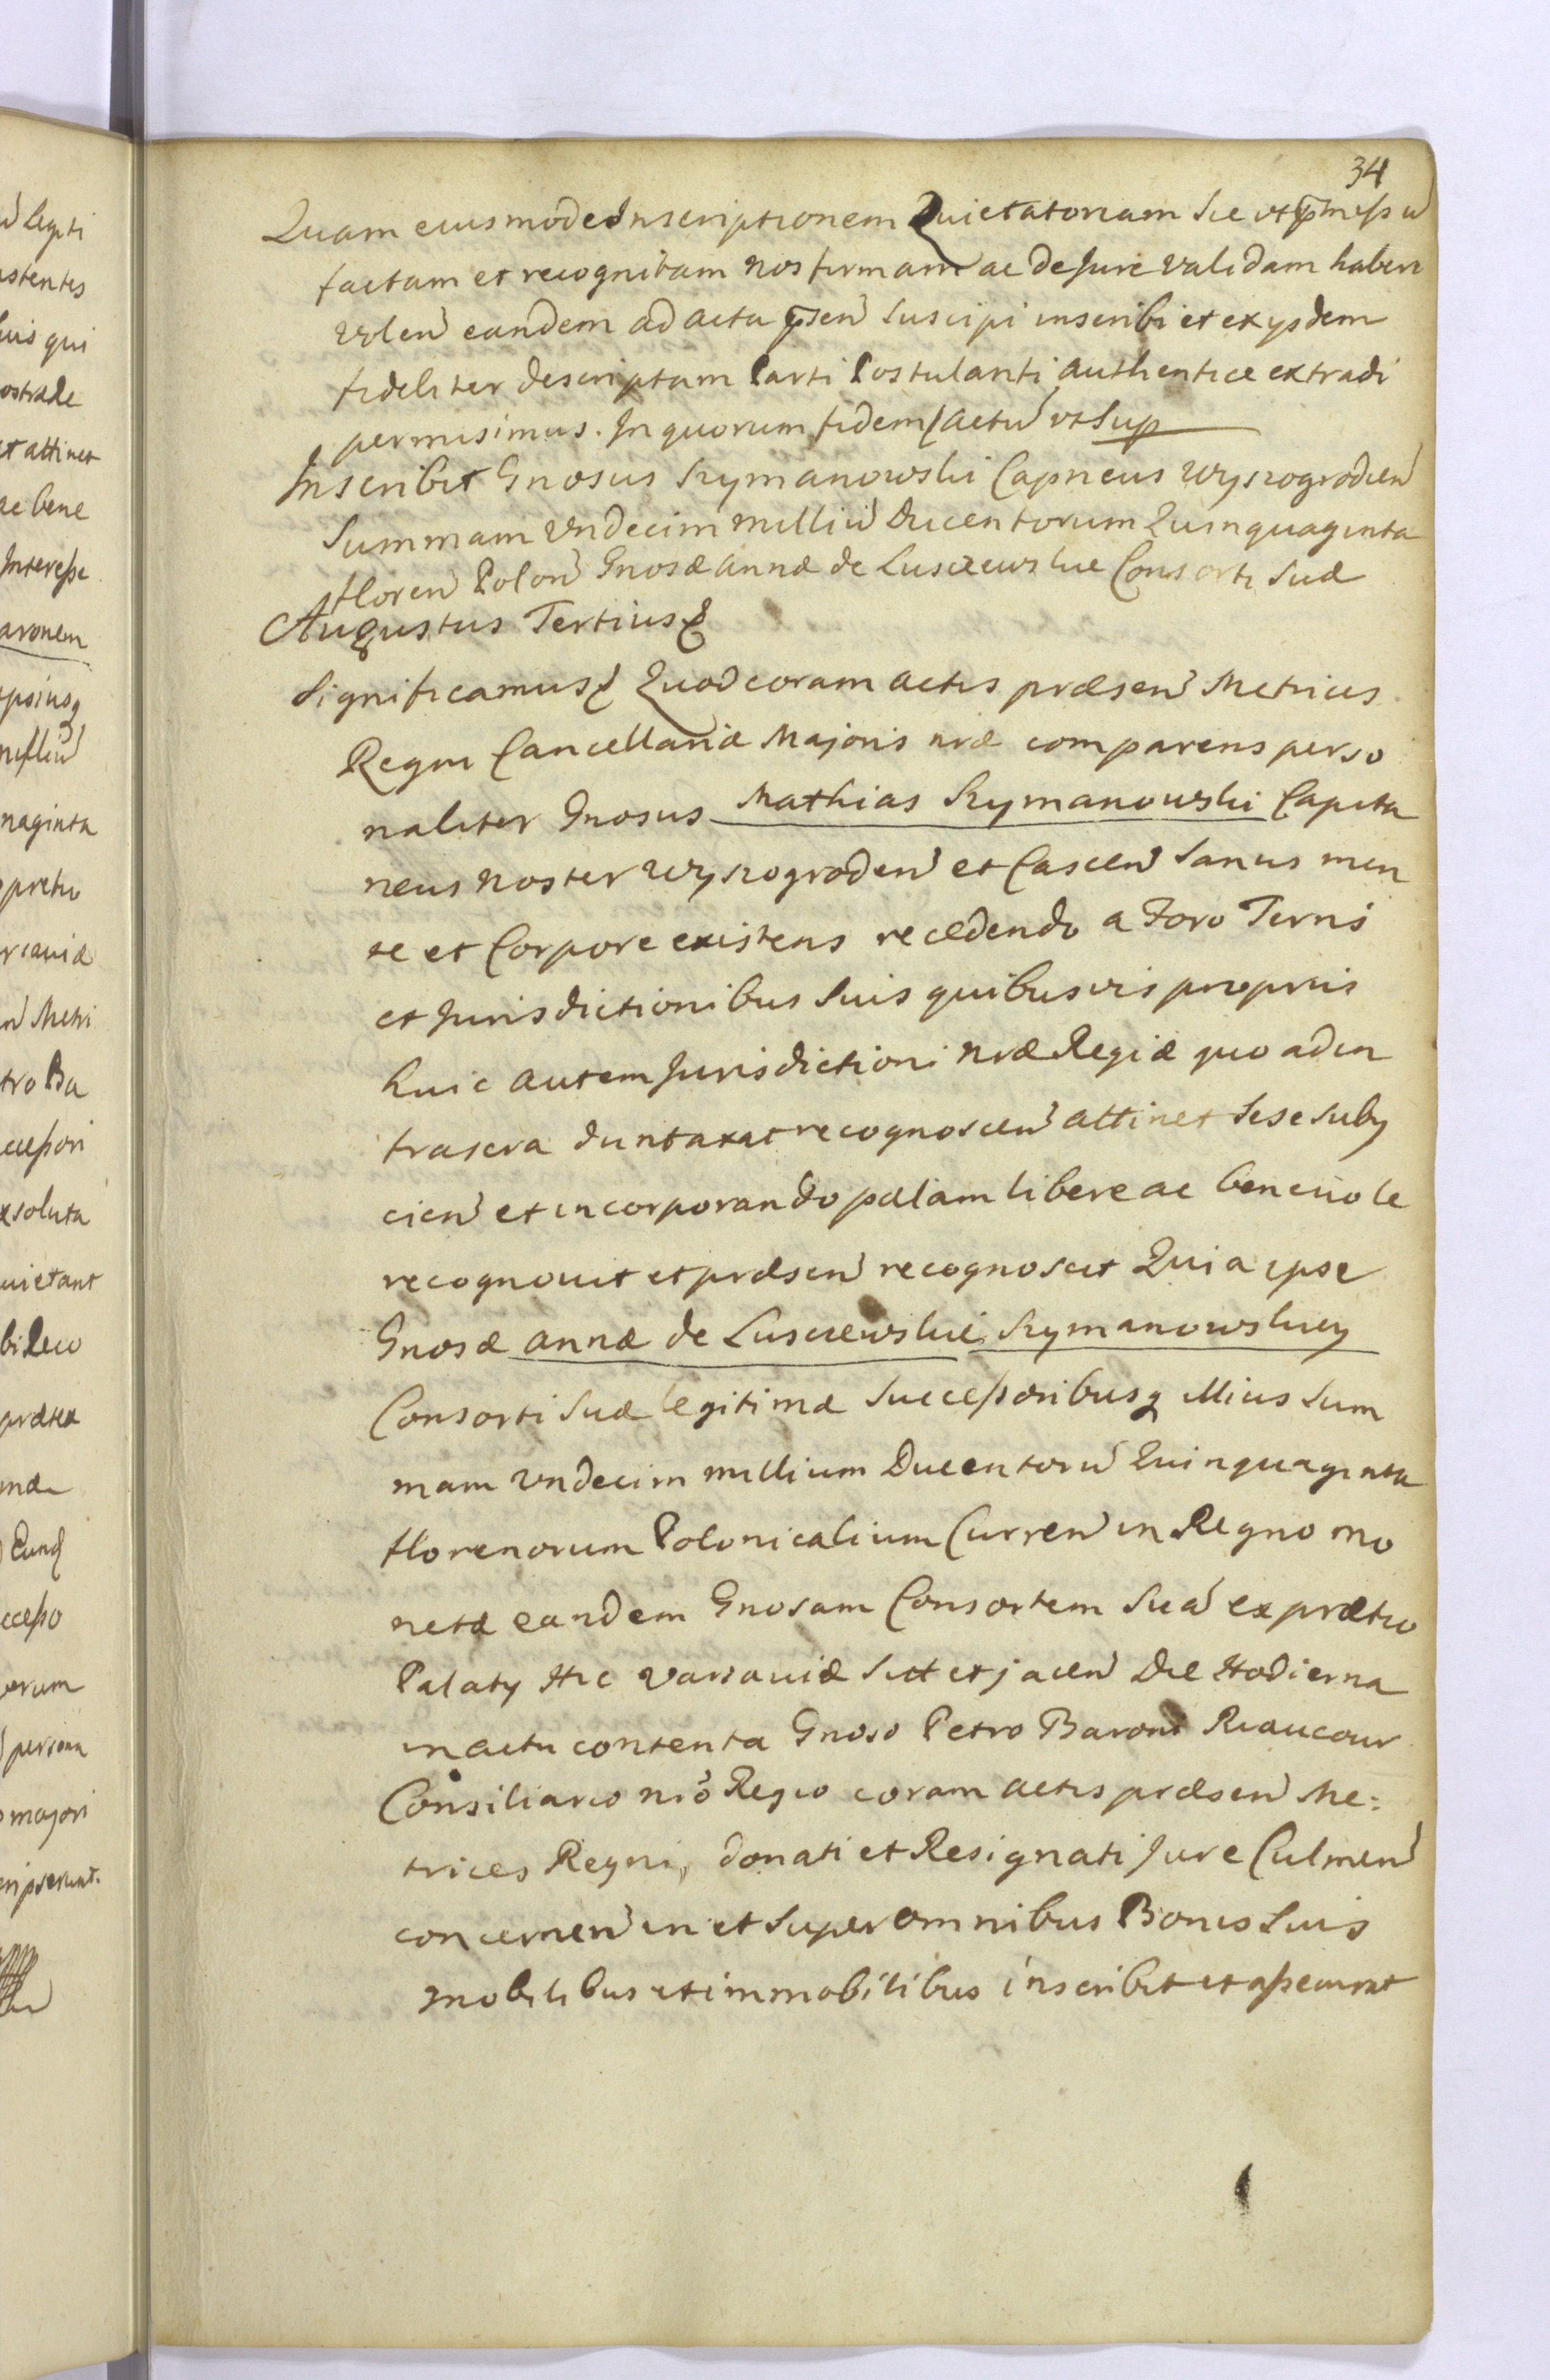 34
Quam eiusmodi Inscriptionem Quietatoriam Sic ut p̄missū
factam et recognitam nos firmam ac de Jure validam habere
volen̄ eandem ad acta p̄sen̄ Suscipi inscribi et ex ijsdem
fideliter descriptam Parti Postulanti authentice extradi
permisimus. In quorum fidem / actū ut Sup
Inscribit Gnosus Szymanowski Capneus Wyszogrodien̄
Summam Undecim milliū Ducentorum Quinquaginta
floren̄ Polon̄ Gnosæ Annæ de Luszczewskie Consorti Suæ
Augustus Tertius &
Significamus & Quod coram actis præsen̄ Metrices
Regni Cancellariæ Majoris nræ comparens perso
naliter Gnosus Mathias Szymanowski Capita
neus noster Wyszogroden̄ et Cascen̄ Sanus men
te et Corpore existens recedendo a Foro Terris
et Jurisdictionibus Suis quibusvis propriis
huic autem Jurisdictioni nræ Regiæ quo ad in
frascra duntaxat recognoscen̄ attinet Sese Subij
cien̄ et incorporando palam libere ac benevole
recognovit et præsen̄ recognoscit Quia ipse
Gnosæ Annæ de Luszczewskie Szymanowskiey
Consorti Suæ legitimæ Successoribusq illius Sum
mam Undecim millium Ducentorū Quinquaginta
florenorum Polonicalium Curren̄ in Regno mo
netæ eandem Gnosam Consortem Suā ex prætio
Palatij Hic Varsaviæ Sitt et jacen̄ Die Hodierna
in actu contenta Gnoso Petro Baroni Riaucour
Consiliario nrō Regio coram actis præsen̄ Me:
trices Regni, donati et Resignati Jure Culmen̄
concernen̄ in et Super omnibus Bonis Suis
mobilibus et immobilibus inscribit et assecurat
w Legiti
istentes
huis qui
ostrade
et attinet
ac bene
Interesse
aronem
ipsiusq
naginta
pretio
n Metri
tro Ba
ccessori
xsoluta
uietant
bi Reco
prætex
Eund
ccesso
orum
persona
majori